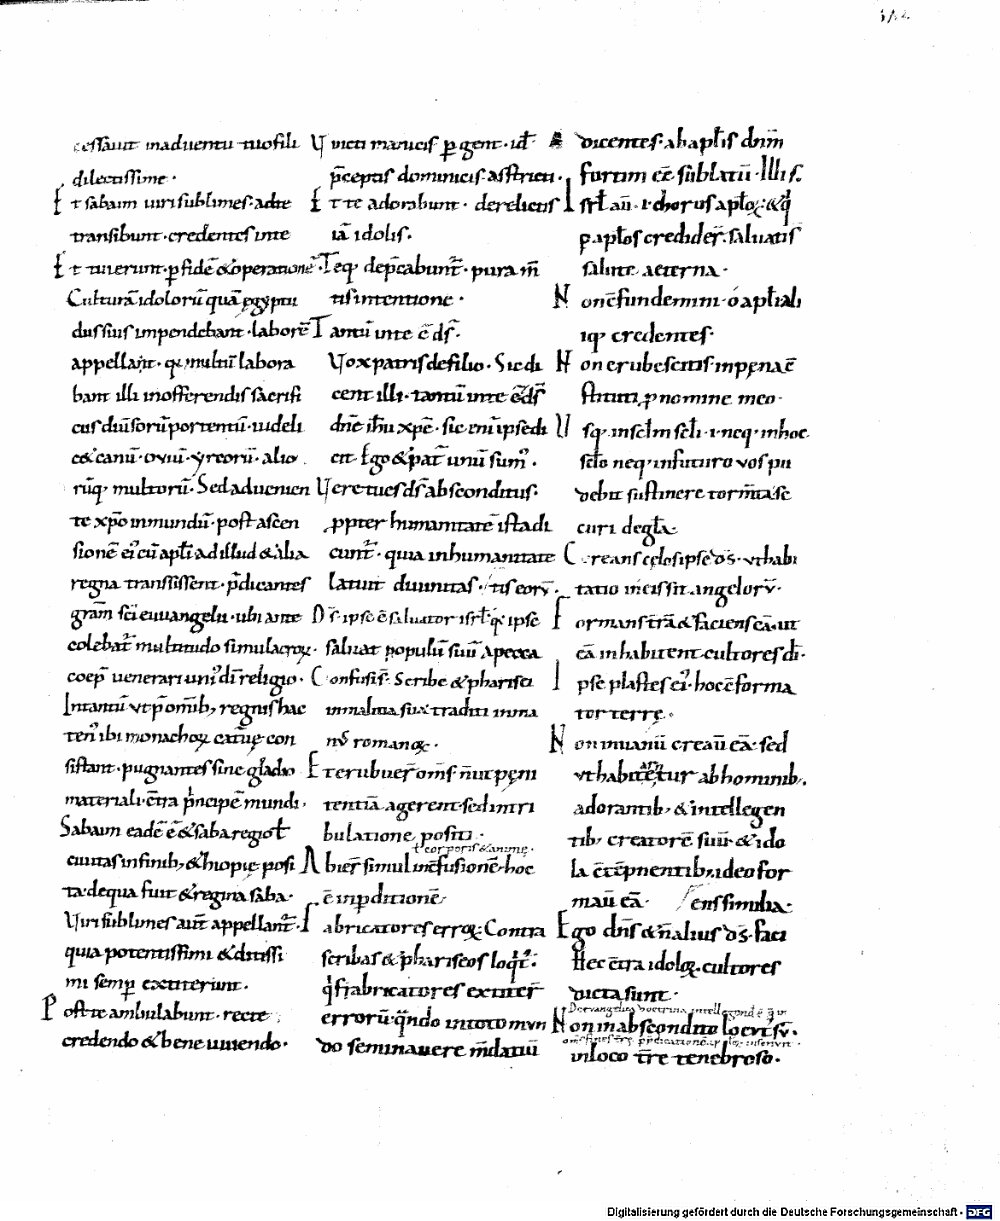 cessauit in aduentu tuo fili
dilectissime·
Et sabaim uiri sublimes· ad te
transibunt· credentes in te
Et tui erunt· p fidē & operationē·
Culturā idolorū quā egyptii
dus suis impendebant· laborē
appellant· qͥa multū labora
bant illi in offerendis sacrifi
ciis diuersorū portentū· iudeli
c& canū· ouiū· yrcorū· alio
rūq· multorū· Sed adueniен
te xp̄o in mundū· post ascen
sionē ei' cū apl̄i ad illud & alia
regna transissent· p̄dicantes
gram̄ sc̄i euuangelii· ubi ante
colebat̄ multitudo simulacroꝝ·
coep̄ uenerari uni' dī religio·
In tantū ut p̄ omīb; regnis hac
ten' ibi monachoꝝ cateruę con
sistant· pugnantes sine gladio
materiali· cͣtra pͥncipē mundi·
Sabaim eadē ē & saba regio t̄
ciuitas in finib; &hiopię posi
ta· de qua fuit & regina saba·
Uiri sublimes aut̄ appellant̄·
quia potentissimi & ditissi
mi semp̄ extiterunt·
Post te ambulabunt· recte
credendo & bene uiuendo·
Uincti manicis pergent· id
p̄ceptis dominicis asstricti·
Et te adorabunt· derelictis
iā idolis·
Teq; dep̄cabunt̄· pura m̄
tis intentione·
Tantū in te ē ds̄·
Uox patris de filio· Sic di
cent illi· tantū in te ē ds̄
dn̄e ihū xp̄e· sic eni ipse di
cit· Ego & pat̄ unū sum'·
Uere tu es ds̄ absconditus·
ꝓpter humanitatē ista di
cunt̄· quia in humanitate
latuit diuinitas·
Ds̄· ipse ē saluator isrl̄· qͥ ipse
saluat populū suū a pecca
Confusi s̄· Scribe & pharisei
in malitia sua traditi in ma
nū romanoꝝ·
Et erubuer̄ oms̄· n̄ ut pęni
tentiā agerent· sed in tri
bulatione positi·
t corporis & animę·
Abier̄ simul in c̄fusionē· hoc
ē in p̄ditionē·
Fabricatores erroꝝ· Contra
scribas & phariseos loqͥt̄·
qͥ fabricatores extiter̄
errorū· qn̄do in toto mun
do seminauere mdatiū
dicentes· ab apl̄is dn̄m
furtim eē sublatū· Illi s̄
Isrl̄ au· i· chorus apl̄oꝝ· & qͥ
p apl̄os credider̄· saluati s̄
salute aeterna·
Non c̄fundemini· ó apl̄i ali
iq; credentes·
Non erubescitis· in pęna c̄
stituti p nomine meo·
Usq; in sclm̄ scl̄i· i· neq; in hoc
scl̄o neq; in futuro uos pu
debit sustinere tormta se
curi de gl̄a·
Creans cęlos ipse ds̄· ut habi
tatio in eis sit angelorū·
Formans t̄rā & faciens eā· ut
eā inhabitent· cultores dī·
Ipse plastes ei'· hoc ē forma
tor terrę·
Non in uanū creau eā· sed
ut habitetur ab hominib;
adorantib; & intellegen
tib; creatorē suū· & ido
la c̄tēpnentib; ideo for
mau eā·
Ego dn̄s & n̄ alius ds̄· faci
ens similia·
Hec c̄tra idoloꝝ· cultores
dicta sunt·
De euangelica doctrina intellegend ē
Non in abscondito locut' sū·
in loco t̄re tenebroso·
Digitalisierung gefördert durch die Deutsche Forschungsgemeinschaft - DFG